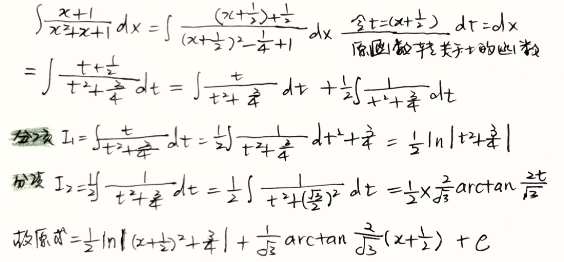 ∫ (x+1)/(x²+x+1) dx = ∫ ((x+1/2)+1/2)/((x+1/2)²-1/4+1) dx 令t=(x+1/2) dt=dx 原函数转关于t的函数
= ∫ (t+1/2)/(t²+3/4) dt = ∫ t/(t²+3/4) dt + 1/2∫ 1/(t²+3/4) dt
分项 I₁=∫ t/(t²+3/4) dt = 1/2∫ 1/(t²+3/4) dt²+3/4 = 1/2 ln|t²+3/4|
分项 I₂=1/2∫ 1/(t²+3/4) dt = 1/2 ∫ 1/(t²+(√3/2)²) dt = 1/2 × 2/√3 arctan 2t/√3
故原式=1/2 ln|(x+1/2)²+3/4| + 1/√3 arctan 2/√3 (x+1/2) + C